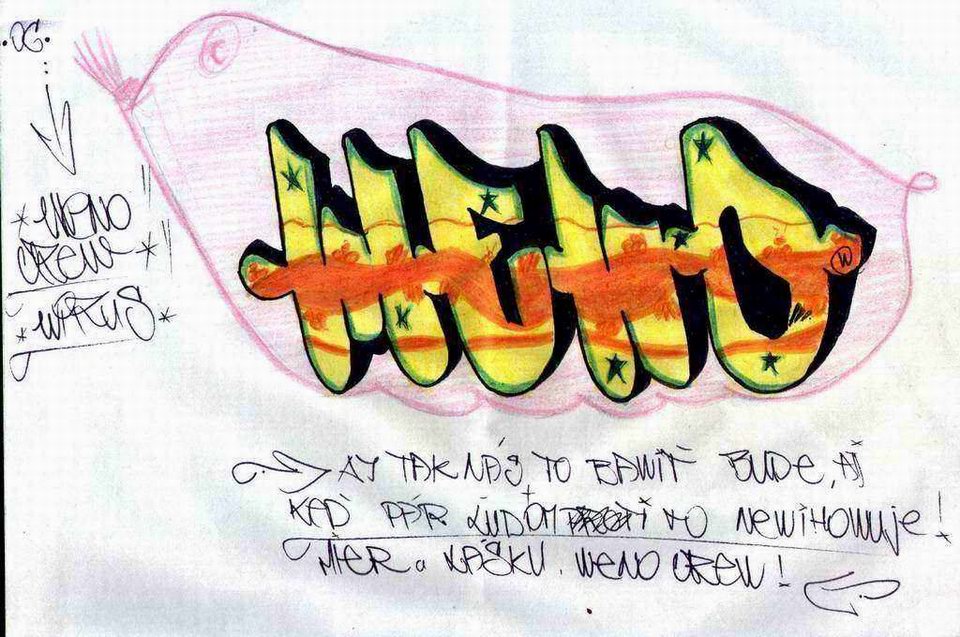 .OC.
WENO
CREW
WIRUS
WENO
W
AJ TAK NÁS TO BAWIŤ BUDE, AJ
KAĎ PÁR ĽUĎOM TO NEWIHOWUJE!
MIER a LÁSKU. WENO CREW!